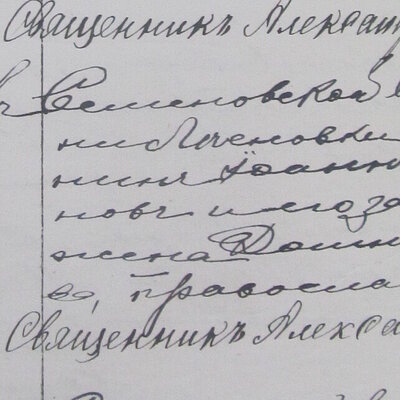 Священникъ Алексан
Семеновской
ни Яченовки
нинъ Іоанн
новъ и его за
жена Домн
ва, правосла
Священникъ Алекса